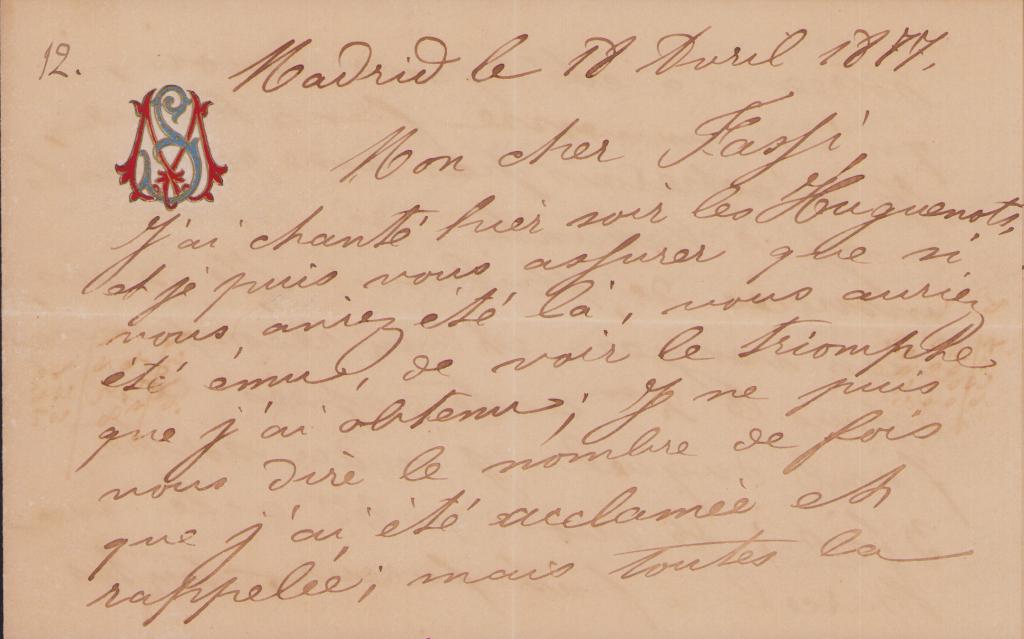 12.
Madrid le 18 Avril 1877.
Mon cher Fassi,
J'ai chanté hier soir les Huguenots,
et je puis vous assurer que si
vous aviez été là, vous auriez
été ému, de voir le triomphe
que j'ai obtenu; Je ne puis
vous dire le nombre de fois
que j'ai été acclamée et
rappelée; mais toutes la